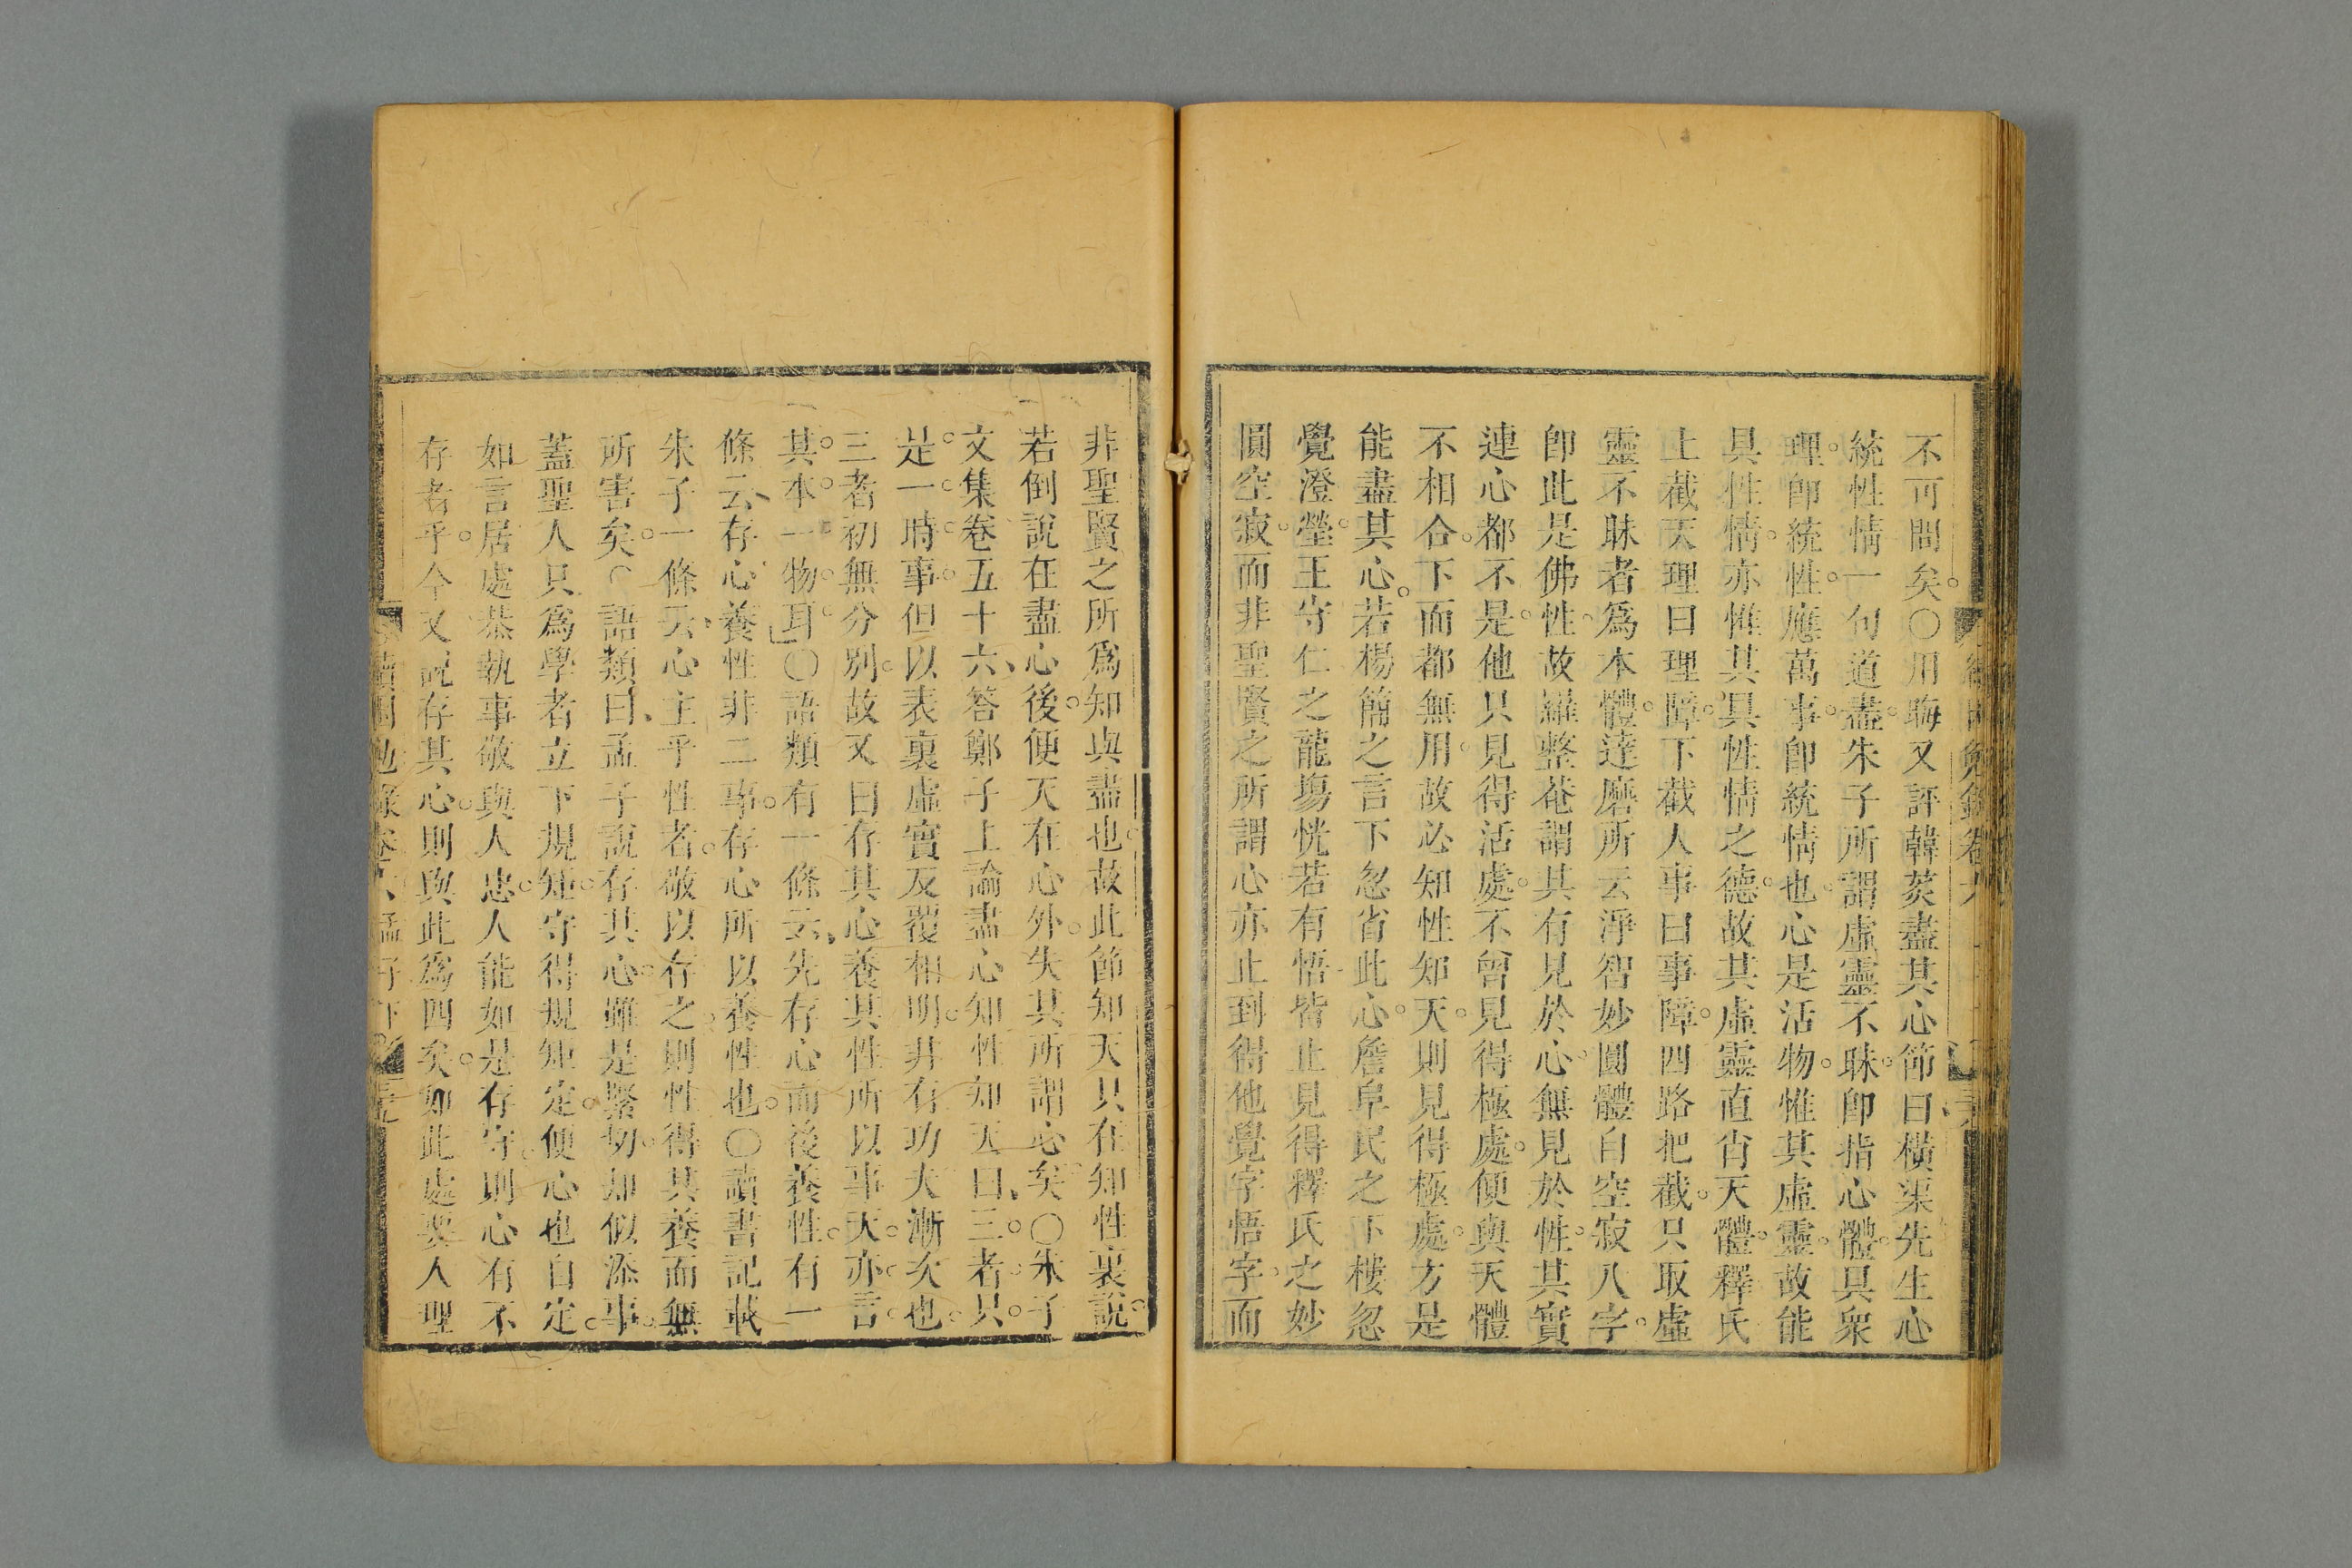 不可問矣○用晦又評韓菼盡其心節曰橫渠先生心
統性情一句道盡朱子所謂虛靈不昧卽指心體具衆
理卽統性應萬事卽統情也心是活物惟其虛靈故能
具性情亦惟其具性情之德故其虛靈直肖天體釋氏
上截天理曰理障下截人事曰事障四路把截只取虛
靈不昧者爲本體達磨所云淨智妙圓體自空寂八字
卽此是佛性故羅整菴謂其有見於心無見於性其實
連心都不是他只見得活處不曾見得極處便與天體
不相合下而都無用故必知性知天則見得極處方是
能盡其心若楊簡之言下忽省此心詹阜民之下樓忽
覺澄瑩王守仁之龍塲恍若有悟皆止見得釋氏之妙
圓空寂而非聖賢之所謂心亦止到得他覺字悟字而
非聖賢之所爲知與盡也故此節知天只在知性裏說
若倒說在盡心後便天在心外失其所謂心矣○朱子
文集卷五十六答鄭子上論盡心知性知天曰三者只
是一時事但以表裏虛實反覆相明非有功夫漸次也
三者初無分別故又曰存其心養其性所以事天亦言
其本一物耳○語類有一條云先存心而後養性有一
條云存心養性非二事存心所以養性也○讀書記載
朱子一條云心主乎性者敬以存之則性得其養而無
所害矣○語類曰孟子說存其心雖是緊切却似添事
蓋聖人只爲學者立下規矩守得規矩定便心也自定
如言居處恭執事敬與人忠人能如是存守則心有不
存者乎今又說存其心則與此爲四矣如此處要人理
讀困勉錄卷六 孟子下